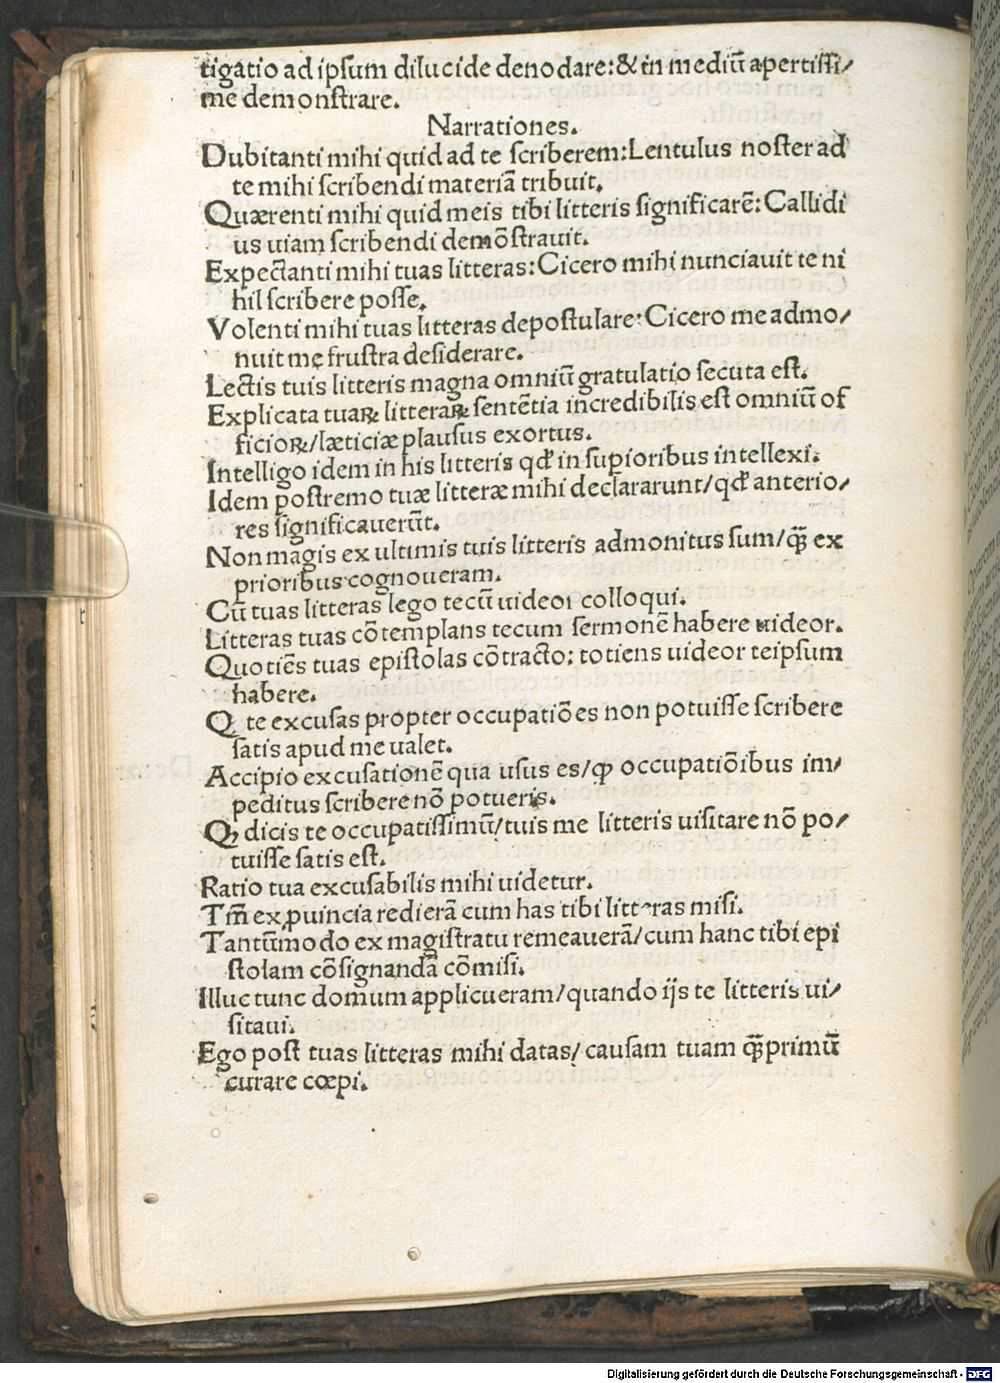 tigatio ad ipsum dilucide denodare: & in mediū apertissi/
me demonstrare.
Narrationes.
Dubitanti mihi quid ad te scriberem: Lentulus noster ad
te mihi scribendi materiā tribuit.
Quærenti mihi quid meis tibi litteris significarē: Callidi
us uiam scribendi demōstrauit.
Expectanti mihi tuas litteras: Cicero mihi nunciauit te ni
hil scribere posse.
Volenti mihi tuas litteras depostulare: Cicero me admo/
nuit me frustra desiderare.
Lectis tuis litteris magna omniū gratulatio secuta est.
Explicata tuaꝝ litteraꝝ sentētia incredibilis est omniū of
ficioꝝ/læticiæ plausus exortus.
Intelligo idem in his litteris qđ in supioribus intellexi.
Idem postremo tuæ litteræ mihi declararunt/qđ anterio/
res significauerūt.
Non magis ex ultimis tuis litteris admonitus sum/q̄ꝫ ex
prioribus cognoueram.
Cū tuas litteras lego tecū uideor colloqui.
Litteras tuas cōtemplans tecum sermonē habere uideor.
Quotiēs tuas epistolas cōtracto: totiens uideor teipsum
habere.
Q te excusas propter occupatiōes non potuisse scribere
satis apud me ualet.
Accipio excusationē qua usus es/ꝙ occupatiōibus im/
peditus scribere nō potueris.
Qꝫ dicis te occupatissimū/tuis me litteris uisitare nō po/
tuisse satis est.
Ratio tua excusabilis mihi uidetur.
Tm̄ ex ꝓuincia redierā cum has tibi litteras misi.
Tantūmodo ex magistratu remeauerā/cum hanc tibi epi
stolam cōsignandā cōmisi.
Illuc tunc domum applicueram/quando ijs te litteris ui/
sitaui.
Ego post tuas litteras mihi datas/ causam tuam q̄ꝫprimū
curare cœpi.
Digitalisierung gefördert durch die Deutsche Forschungsgemeinschaft - DFG